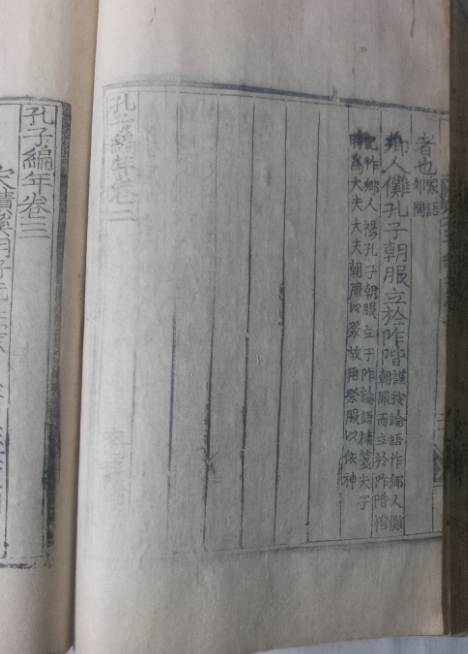 者也家語
郊問
鄉人儺孔子朝服立於阼階謹按論語作鄉人儺
朝服而立於阼階禮
記作鄉人禓孔子朝服立于阼論語精義夫子
為大夫大夫朝服以祭故用祭服以依神
孔子編年卷二
孔子編年卷三